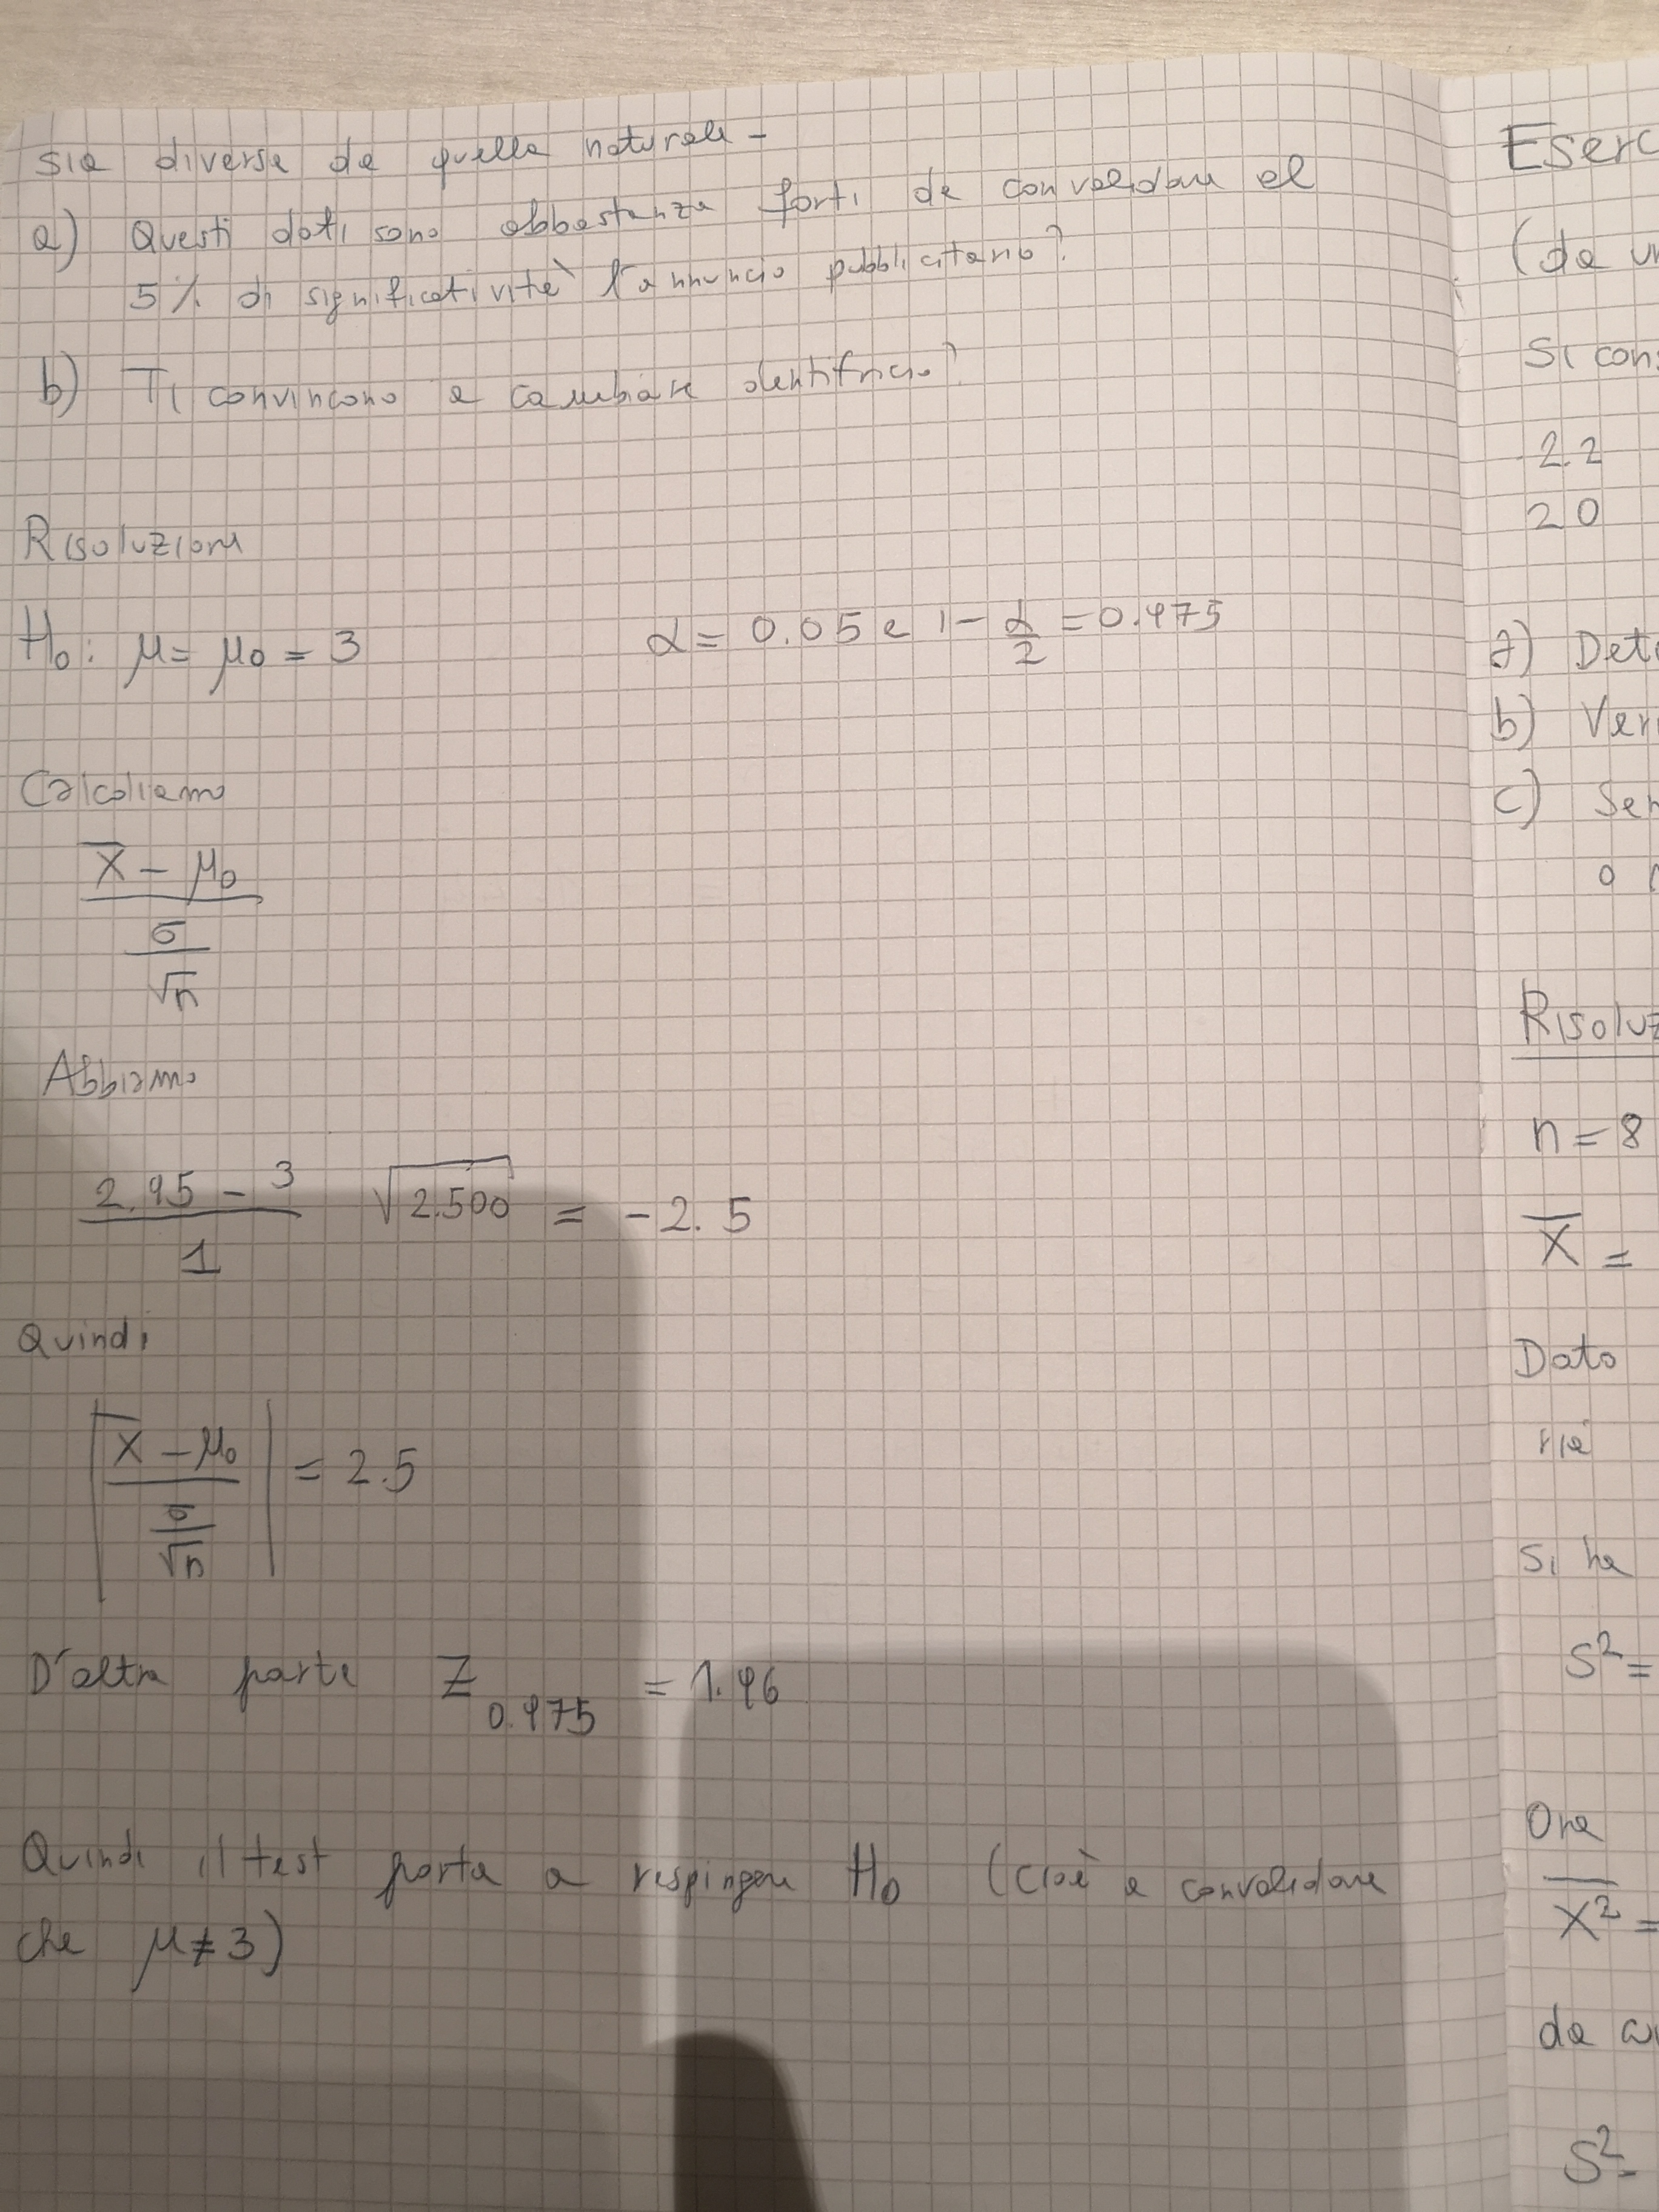 sia diversa da quella naturale -
a) Questi dati sono abbastanza forti da convalidare al
5% di significatività l'annuncio pubblicitario?
b) Ti convincono a cambiare dentifricio?
Risoluzione
H₀: μ = μ₀ = 3 α = 0.05 e 1 - α/2 = 0.975
Calcoliamo
X̄ - μ₀
σ
√n
Abbiamo
2.95 - 3 √2.500 = -2.5
1
Quindi
|X̄ - μ₀| = 2.5
σ
√n
D'altra parte Z 0.975 = 1.96
Quindi il test porta a respingere H₀ (cioè a convalidare
che μ ≠ 3)
Eserc
(da un
Si cons
2.2
20
a) Dete
b) Veri
c) Sen
o
Risoluz
n = 8
X̄ =
Dato
ria
Si ha
S² =
Ora
X̄² =
da cu
S² =